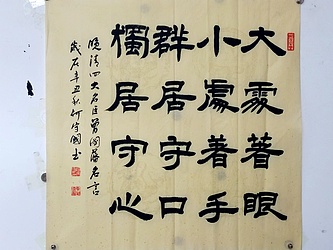 大處着眼
小處着手
群居守口
獨居守心
晚清四大名臣曾國藩名言
歲在辛丑秋